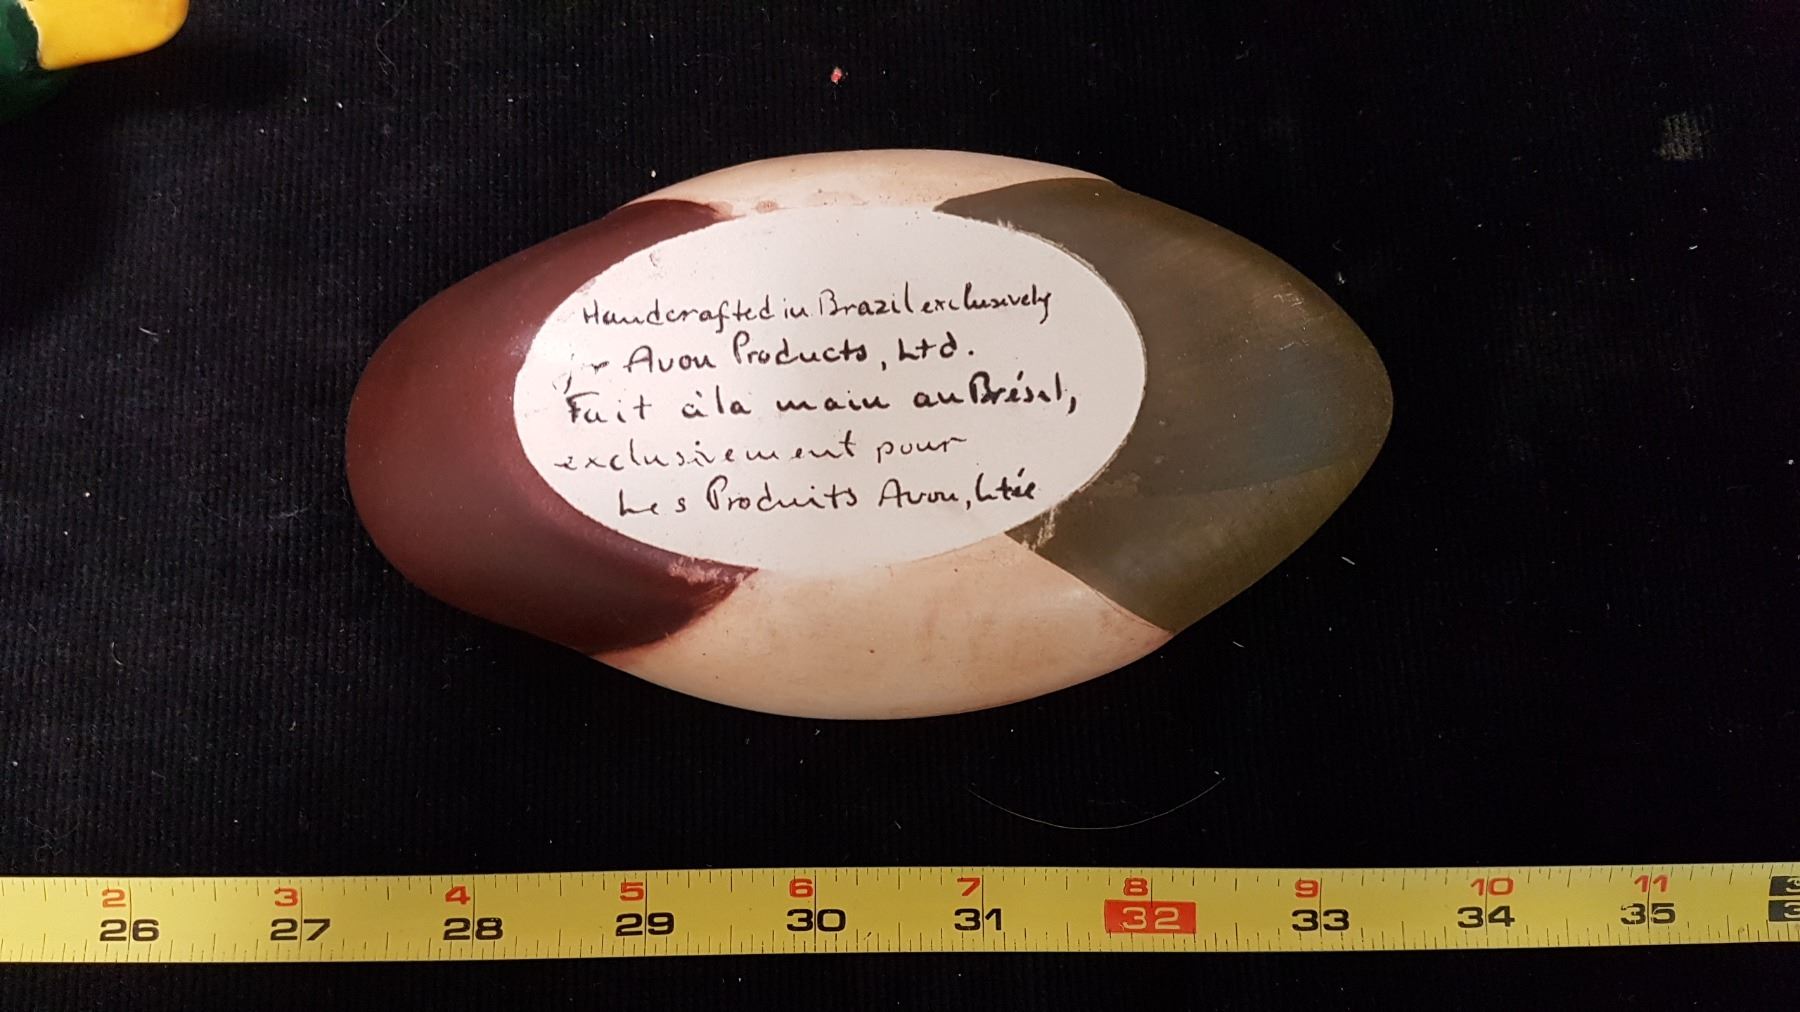 Handcrafted in Brazil exclusively
for Avon Products, Ltd.
Fait à la main au Brésil,
exclusivement pour
Les Produits Avon, Ltée
2 3 4 5 6 7 8 9 10 11
26 27 28 29 30 31 32 33 34 35